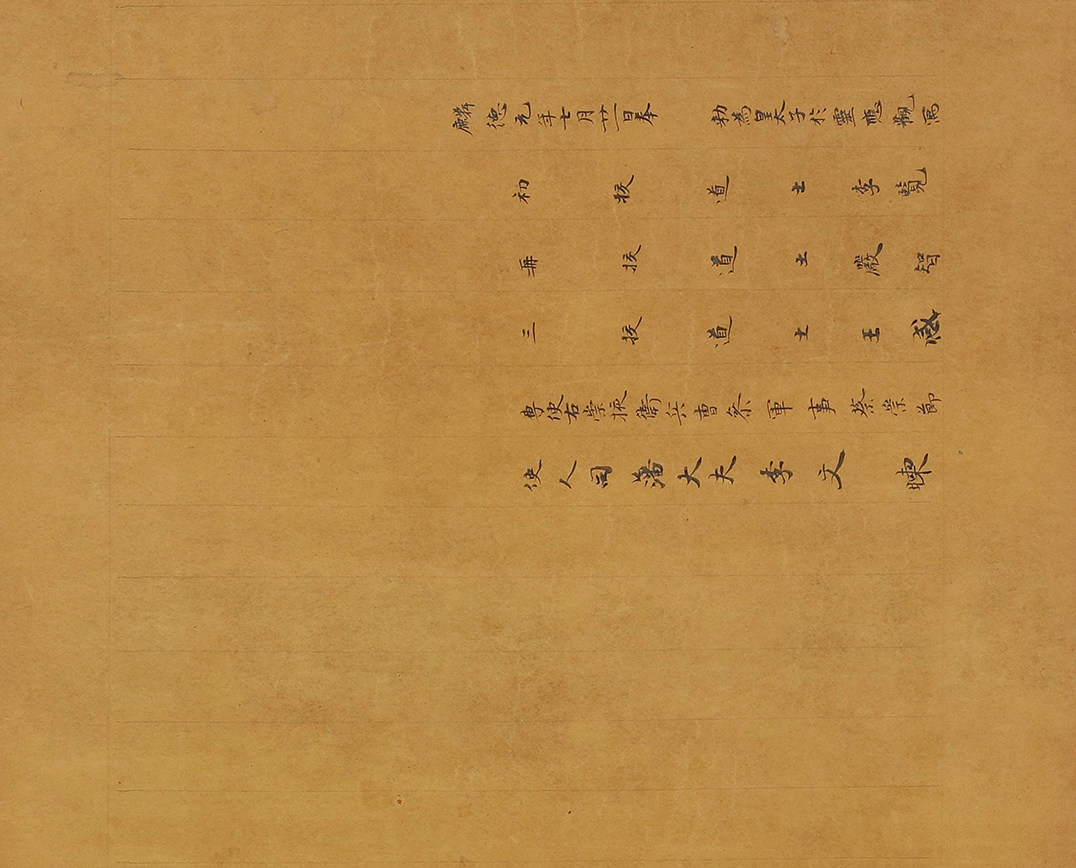 麟德元年七月廿一日奉 勅為皇太子於靈應觀寫
初校道士李覽
再校道士嚴智
三校道士王感
專使右崇掖衛兵曹參軍事蔡崇節
使人司藩大夫李文暕